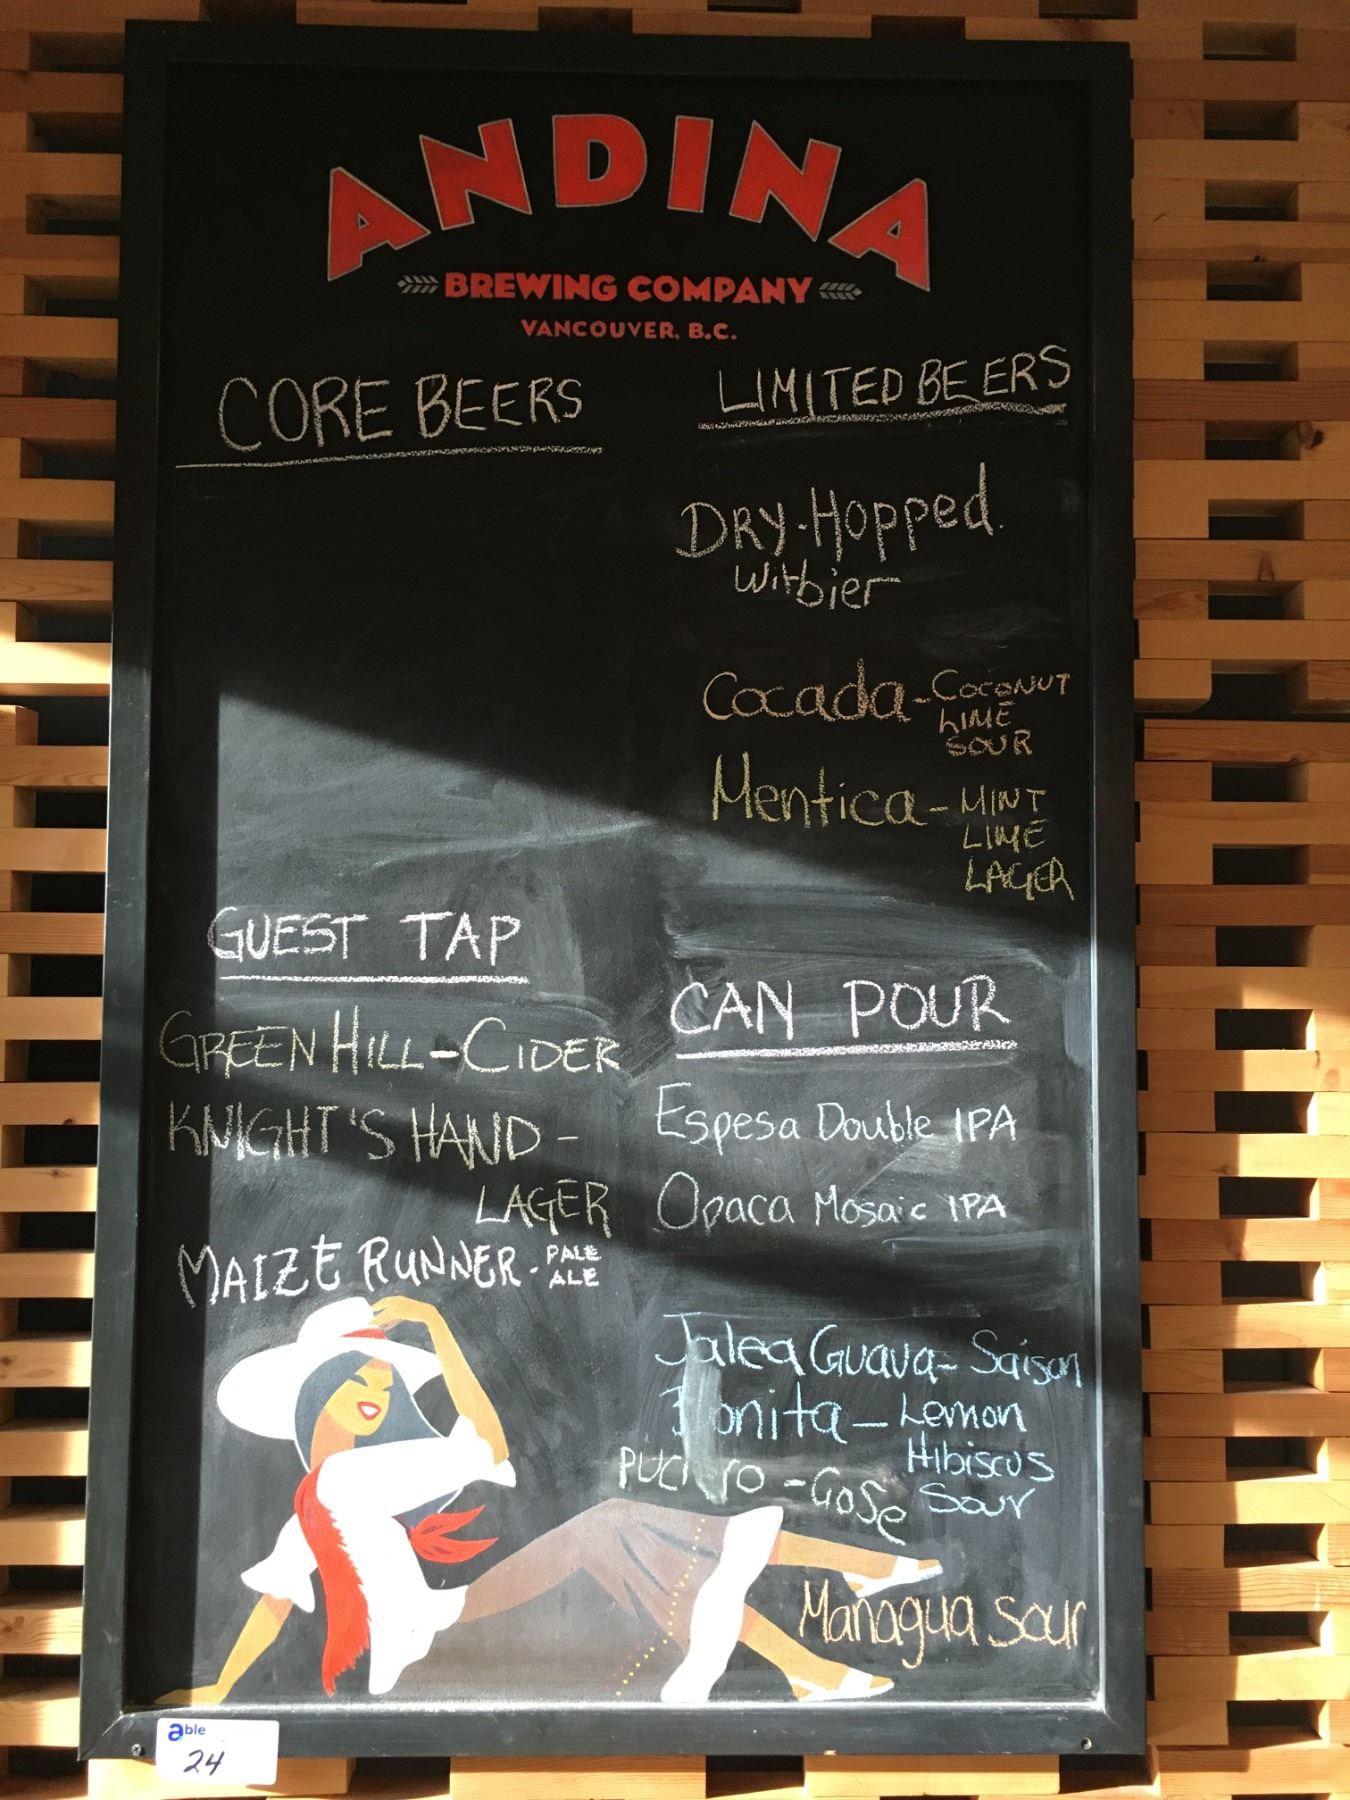 ANDINA
BREWING COMPANY
VANCOUVER, B.C.
CORE BEERS
GUEST TAP
GREEN HILL - CIDER
KNIGHT'S HAND -
LAGER
MAIZE RUNNER - PALE
ALE
LIMITED BEERS
DRY-Hopped
Witbier
Cocada - COCONUT
LIME
SOUR
Mentica - MINT
LIME
LAGER
CAN POUR
Espesa Double IPA
Opaca Mosaic IPA
Jalea Guava - Saison
Bonita - Lemon
Hibiscus
Sour
- Gose
Managua Sour
able
24